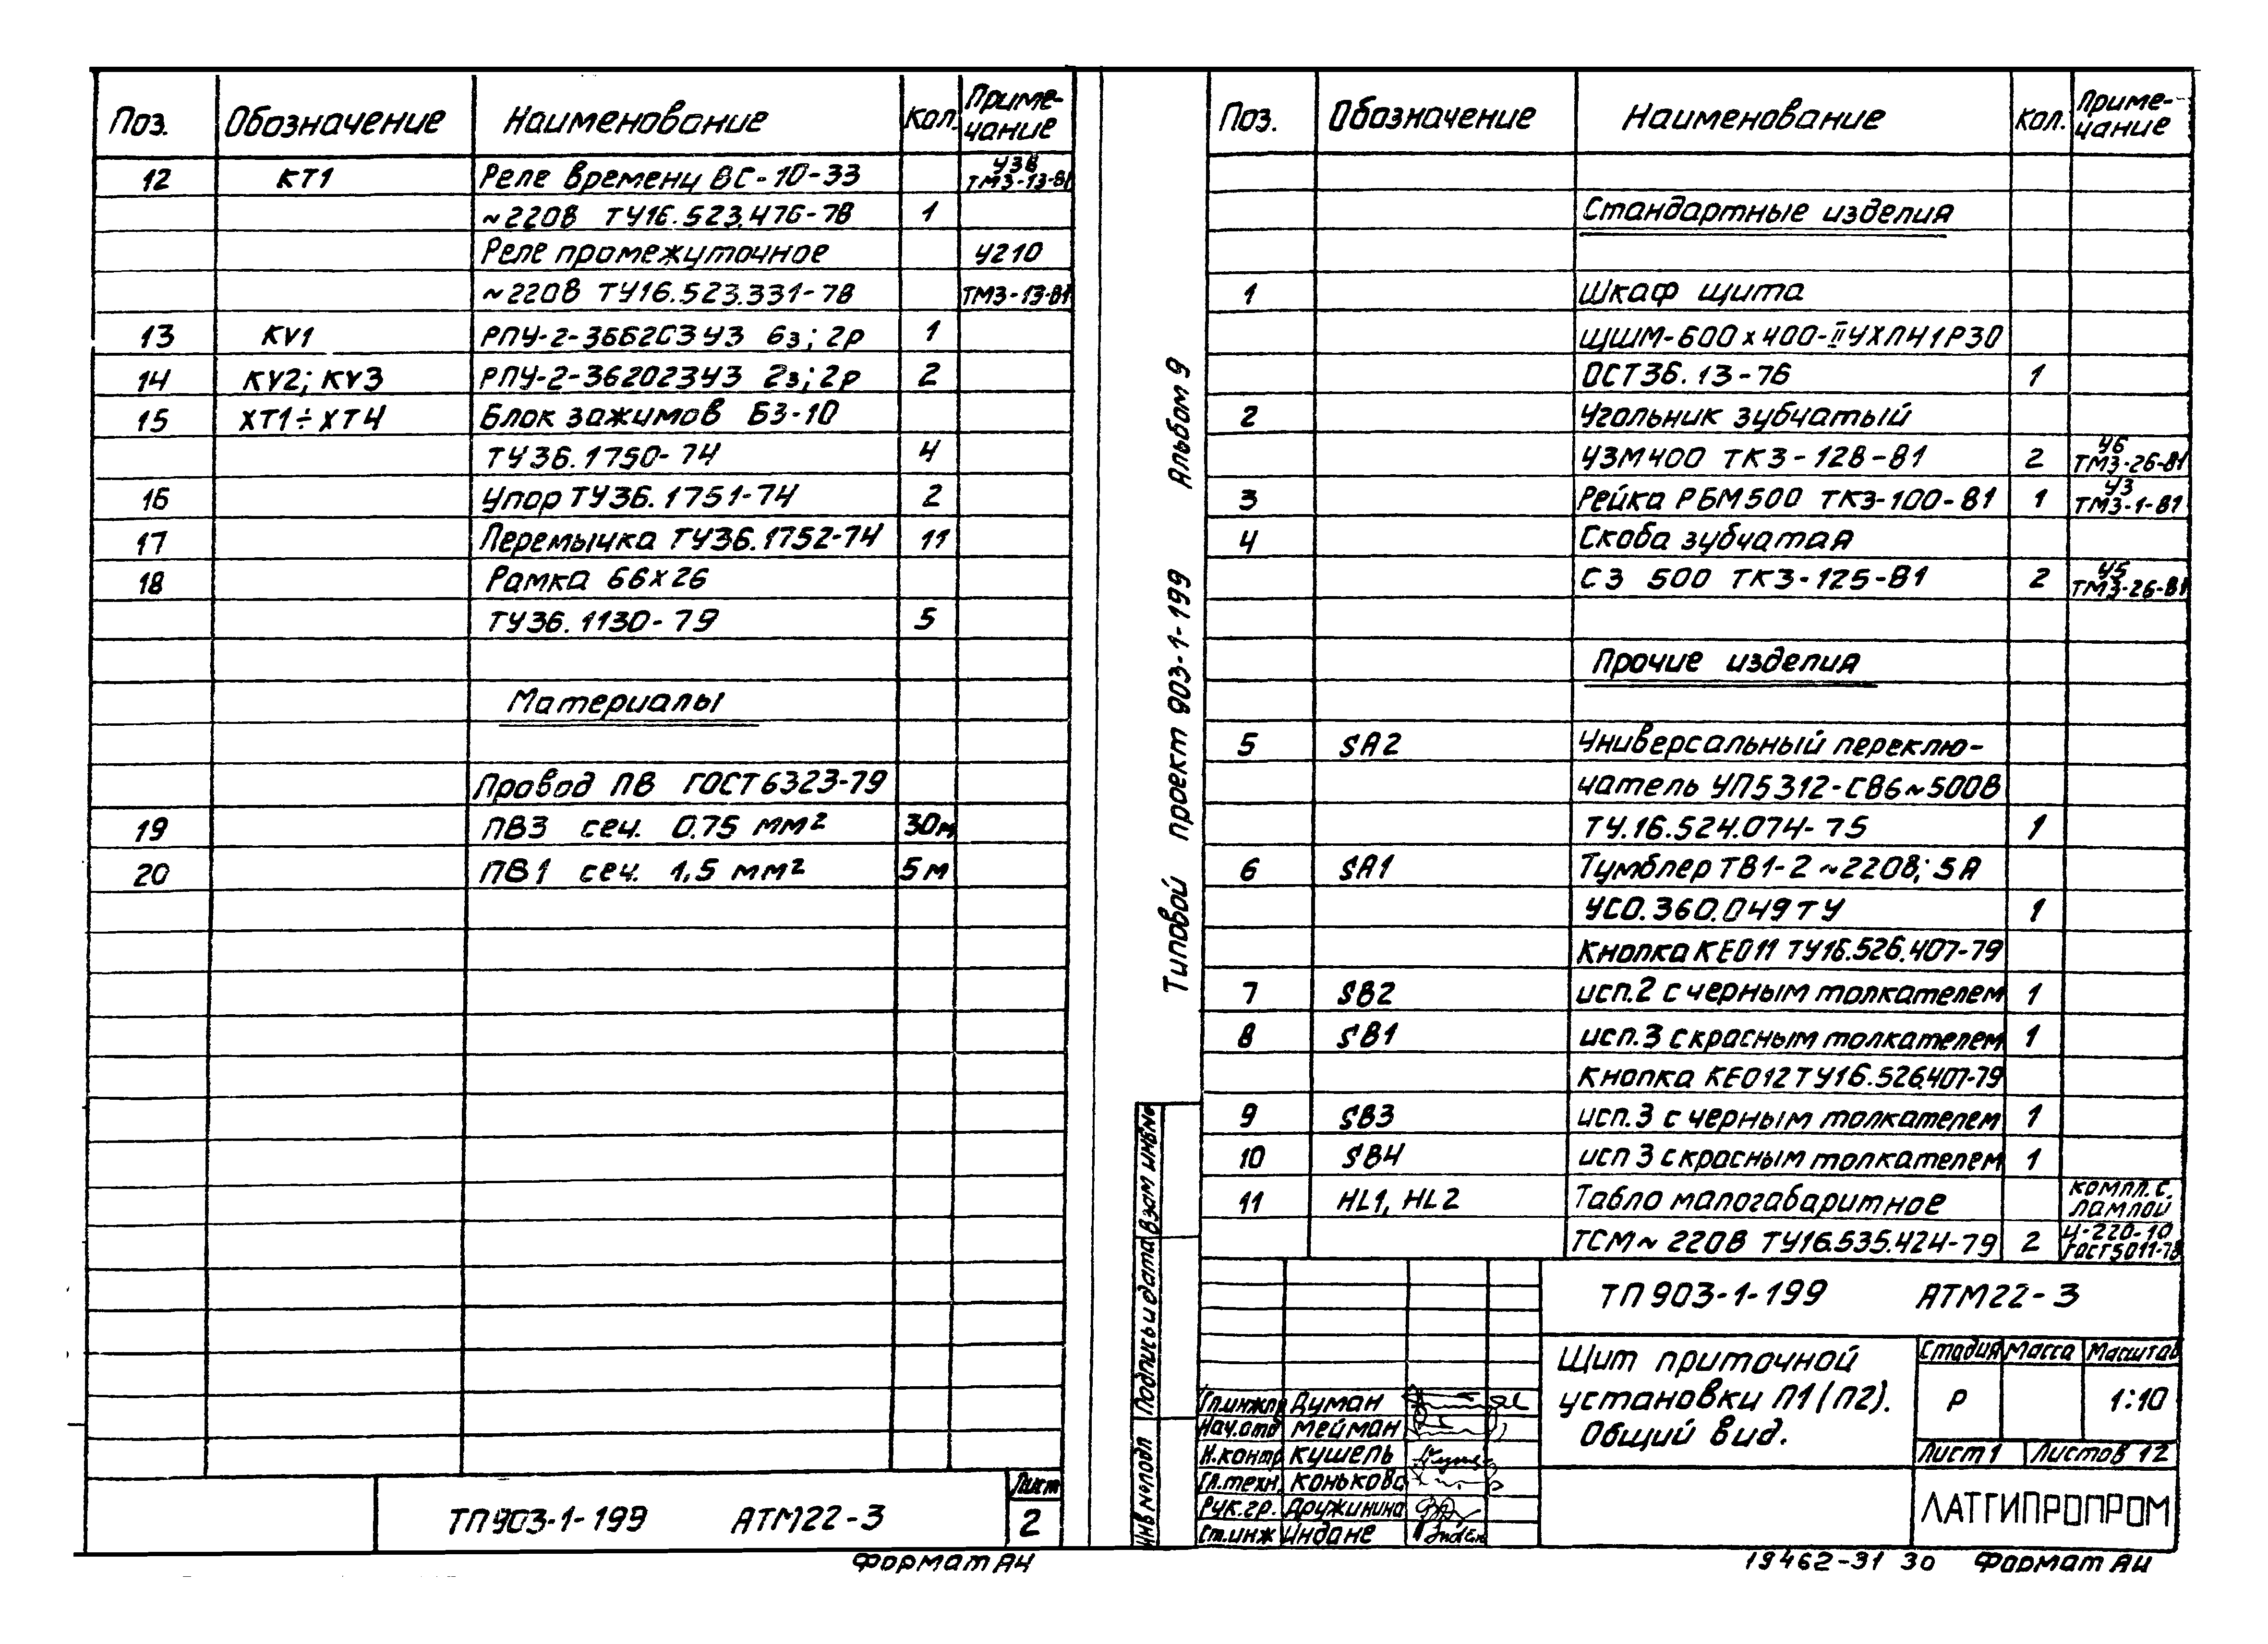 Поз. Обозначение Наименование Кол. Приме-
чание
12 КТ1 Реле времени ВС-10-33 У3В
ТМ3-13-81
~220В ТУ16.523.476-78 1
Реле промежуточное У210
~220В ТУ16.523.331-78 ТМ3-13-81
13 KV1 РПУ-2-36620ЗУ3 6з; 2р 1
14 KV2; KV3 РПУ-2-362023У3 2з; 2р 2
15 XT1÷XT4 Блок зажимов БЗ-10
ТУ36.1750-74 4
16 Упор ТУ36.1751-74 2
17 Перемычка ТУ36.1752-74 11
18 Рамка 66х26
ТУ36.1130-79 5
Материалы
Провод ПВ ГОСТ6323-79
19 ПВ3 сеч. 0.75 мм² 30м
20 ПВ1 сеч. 1,5 мм² 5м
ТП903-1-199 АТМ22-3
Лист
2
Формат А4
Типовой проект 903-1-199 Альбом 9
Поз. Обозначение Наименование Кол. Приме-
чание
Стандартные изделия
1 Шкаф щита
ЩШМ-600х400-IIУХЛ41Р30
ОСТ36.13-76 1
2 Угольник зубчатый
УЗМ400 ТК3-128-81 2 У6
ТМ3-26-81
3 Рейка РБМ500 ТК3-100-81 1 У3
ТМ3-1-81
4 Скоба зубчатая
СЗ 500 ТК3-125-81 2 У5
ТМ3-26-81
Прочие изделия
5 SA2 Универсальный переклю-
чатель УП5312-С86~500В
ТУ.16.524.074-75 1
6 SA1 Тумблер ТВ1-2 ~220В; 5А
УСО.360.049ТУ 1
Кнопка КЕ011 ТУ16.526.407-79
7 SB2 исп.2 с черным толкателем 1
8 SB1 исп.3 с красным толкателем 1
Кнопка КЕ012 ТУ16.526.407-79
9 SB3 исп.3 с черным толкателем 1
10 SB4 исп 3 с красным толкателем 1
11 HL1, HL2 Табло малогабаритное компл. с.
лампой
ТСМ~220В ТУ16.535.424-79 2 Ц-220-10
ГОСТ5011-78
Взам инв№
Подпись и дата
Инв №подл
ТП903-1-199 АТМ22-3
Щит приточной
установки П1(П2).
Общий вид.
Стадия Масса Масштаб
Р 1:10
Лист 1 Листов 12
Гл.инжпр Думан
Нач.отд Мейман
Н.контр Кушель
Гл.техн. Конькова
Рук.гр. Дружинина
Ст.инж Индане
ЛАТГИПРОПРОМ
19462-31 30 Формат А4